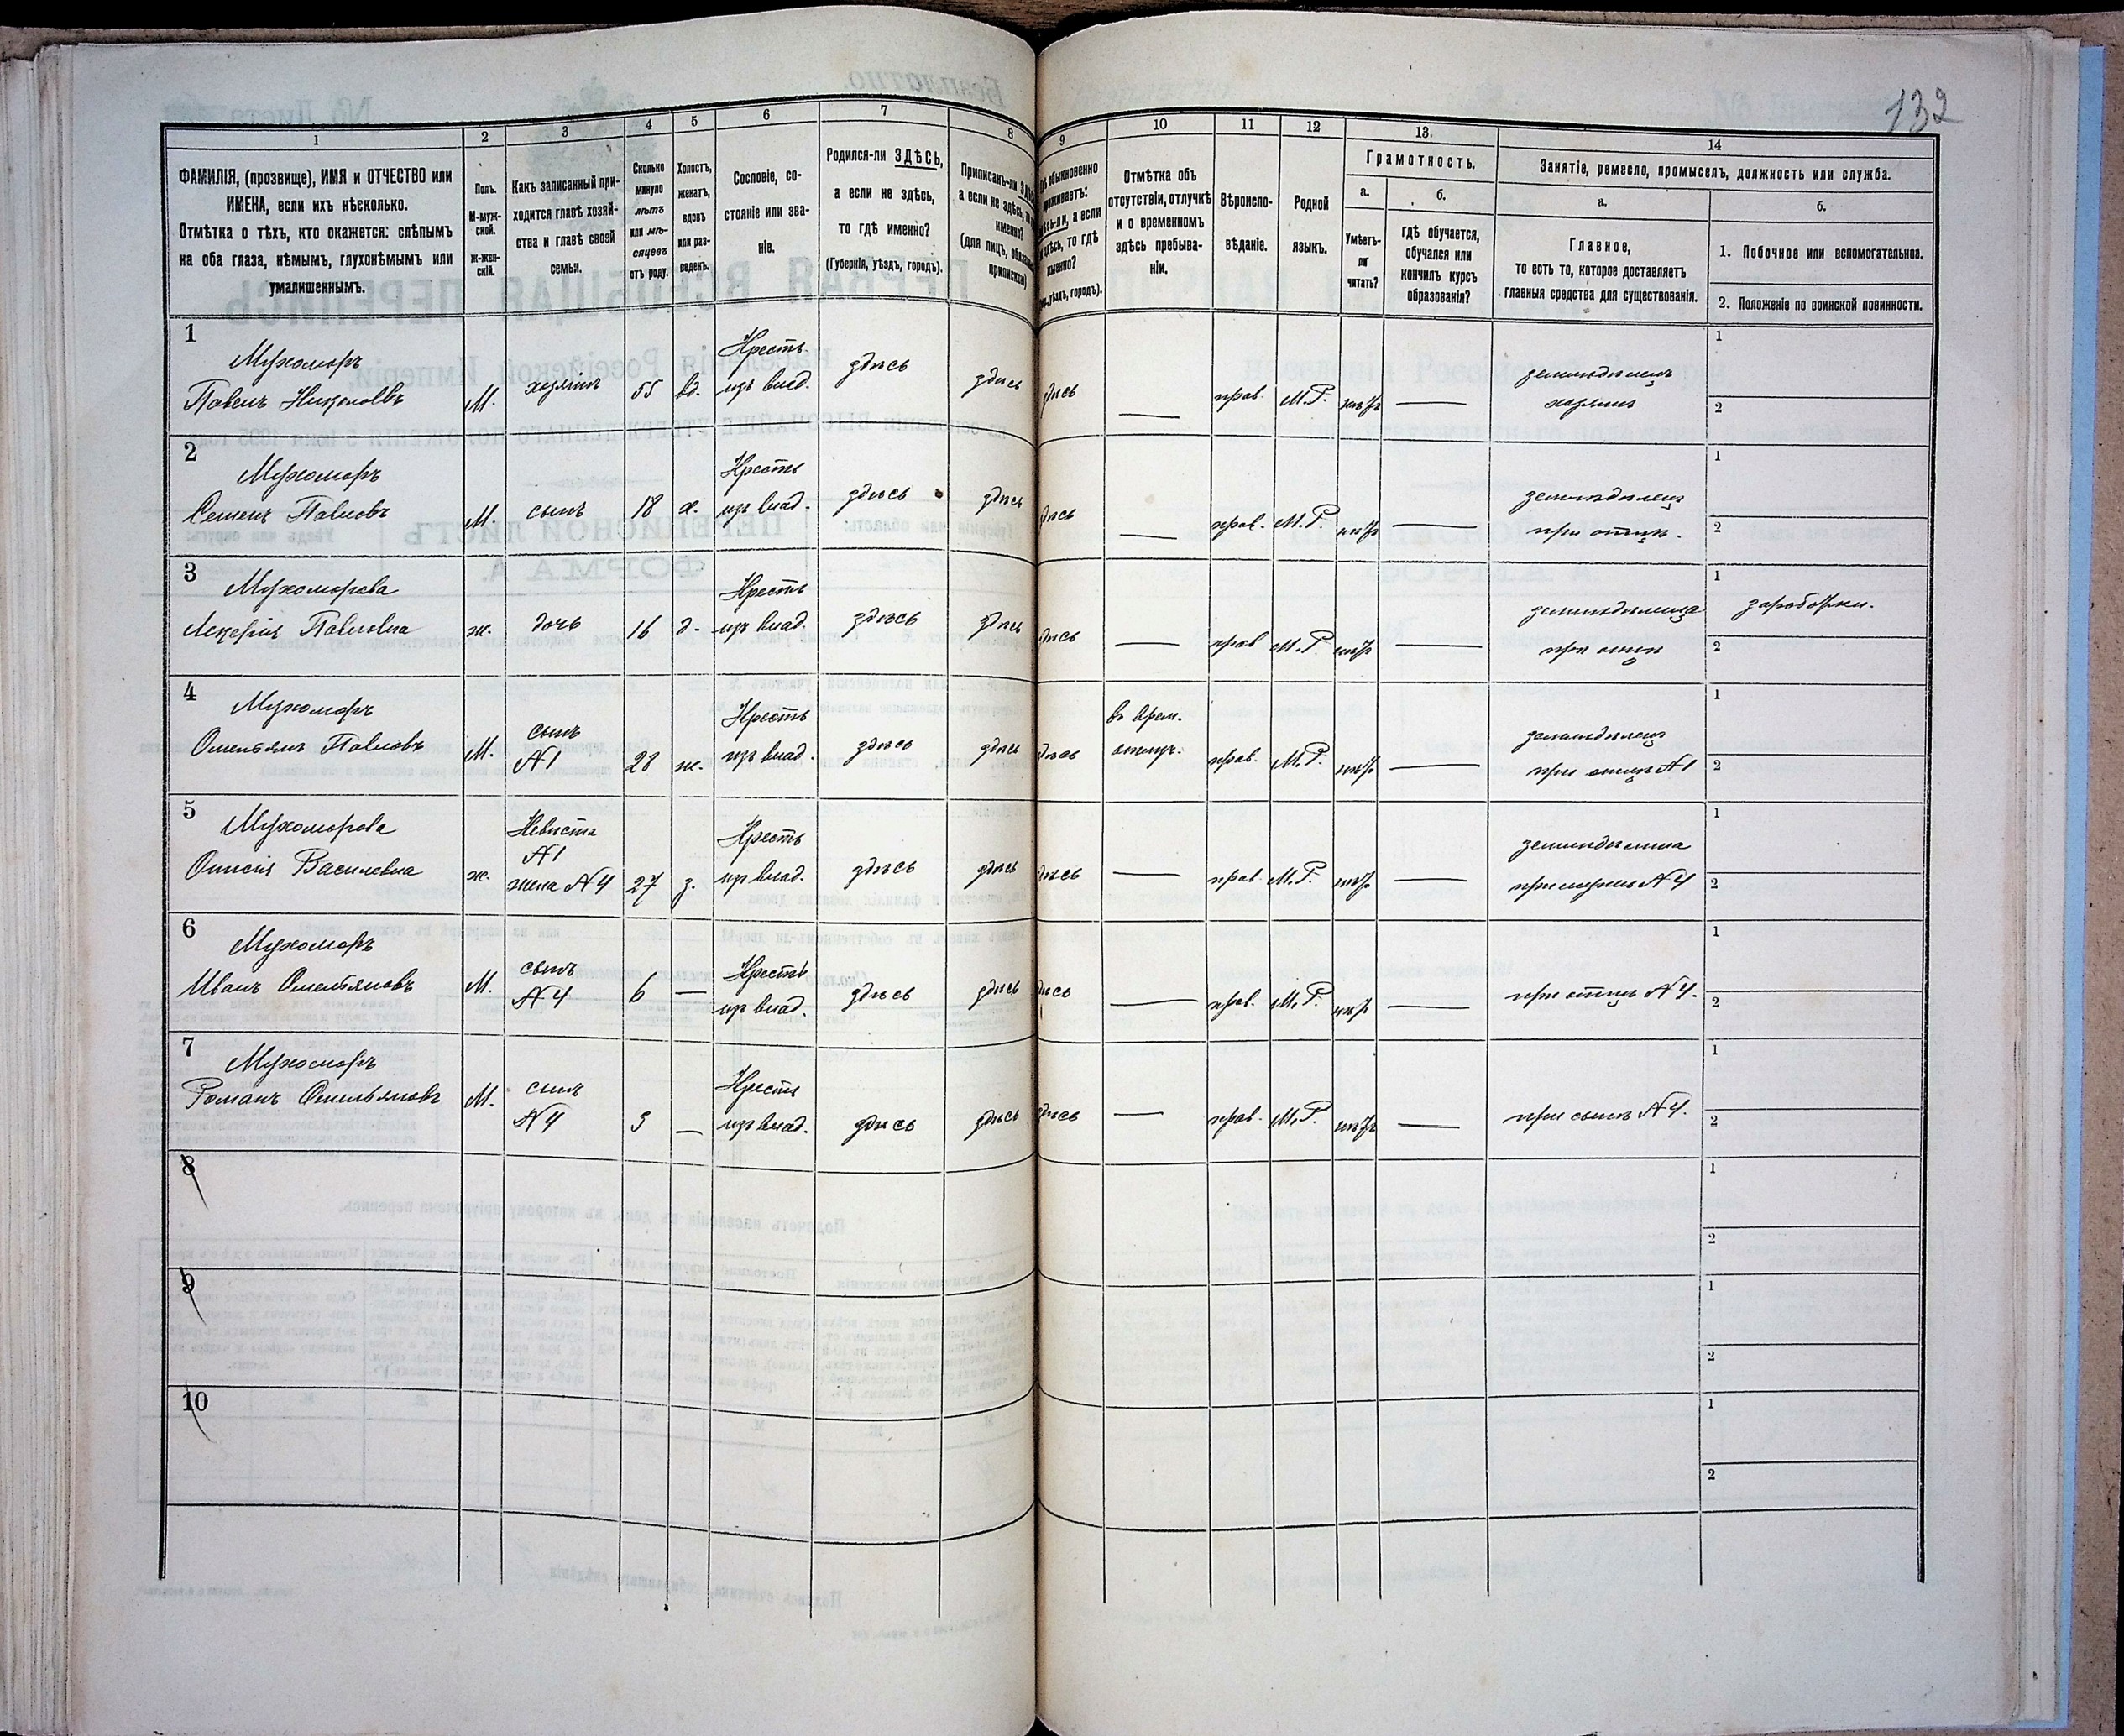 132
1
2
3
4
5
6
7
8
9
10
11
12
13.
14
ФАМИЛІЯ, (прозвище), ИМЯ и ОТЧЕСТВО или
ИМЕНА, если ихъ нѣсколько.
Отмѣтка о тѣхъ, кто окажется: слѣпымъ
на оба глаза, нѣмымъ, глухонѣмымъ или
умалишеннымъ.
Полъ.
М-муж-
ской.
Ж-жен-
скій.
Какъ записанный при-
ходится главѣ хозяй-
ства и главѣ своей
семьи.
Сколько
минуло
лѣтъ
или мѣ-
сяцевъ
отъ роду.
Холостъ,
женатъ,
вдовъ
или раз-
веденъ.
Сословіе, со-
стояніе или зва-
ніе.
Родился-ли ЗДѢСЬ,
а если не здѣсь,
то гдѣ именно?
(Губернія, уѣздъ, городъ).
Приписанъ-ли
а если не здѣсь,
именно?
(для лицъ,
приписки)
обыкновенно
проживаетъ:
а если
то гдѣ
именно?
уѣздъ, городъ).
Отмѣтка объ
отсутствіи, отлучкѣ
и о временномъ
здѣсь пребыва-
ніи.
Вѣроиспо-
вѣданіе.
Родной
языкъ.
Грамотность.
а.
Умѣетъ-
ли
читать?
б.
гдѣ обучается,
обучался или
кончилъ курсъ
образованія?
Занятіе, ремесло, промыселъ, должность или служба.
а.
Главное,
то есть то, которое доставляетъ
главныя средства для существованія.
б.
1. Побочное или вспомогательное.
2. Положеніе по воинской повинности.
1
Мухоморъ
Павелъ Николаевъ
М.
хозяинъ
55
вд.
Крестъ.
изъ влад.
здѣсь
здѣсь
здѣсь
прав.
М.Р.
нѣтъ
земледѣлецъ
хозяинъ
1
2
2
Мухоморъ
Семенъ Павловъ
М.
сынъ
18
х.
Крестъ
изъ влад.
здѣсь
здѣсь
здѣсь
прав.
М.Р.
нѣтъ
земледѣлецъ
при отцѣ.
1
2
3
Мухоморова
Лекерія Павловна
ж.
дочь
16
д.
Крестъ
изъ влад.
здѣсь
здѣсь
здѣсь
прав
М.Р.
нѣтъ
земледѣлица
при отцѣ
1
заработки.
2
4
Мухоморъ
Омельянъ Павловъ
М.
сынъ
№1
28
ж.
Крестъ
изъ влад.
здѣсь
здѣсь
здѣсь
въ врем.
отлуч.
прав.
М.Р.
нѣтъ
земледѣлецъ
при отцѣ №1
1
2
5
Мухоморова
Онисія Василевна
ж.
Невѣстка
№1
жена №4
27
з.
Крестъ
изъ влад.
здѣсь
здѣсь
здѣсь
прав.
М.Р.
нѣтъ
земледѣлица
при мужѣ №4
1
2
6
Мухоморъ
Иванъ Омельяновъ
М.
сынъ
№4
6
Крестъ
изъ влад.
здѣсь
здѣсь
здѣсь
прав.
М.Р.
нѣтъ
при отцѣ №4.
1
2
7
Мухоморъ
Романъ Омельяновъ
М.
сынъ
№4
3
Крестъ
изъ влад.
здѣсь
здѣсь
здѣсь
прав.
М.Р.
нѣтъ
при сынѣ №4.
1
2
8
1
2
9
1
2
10
1
2